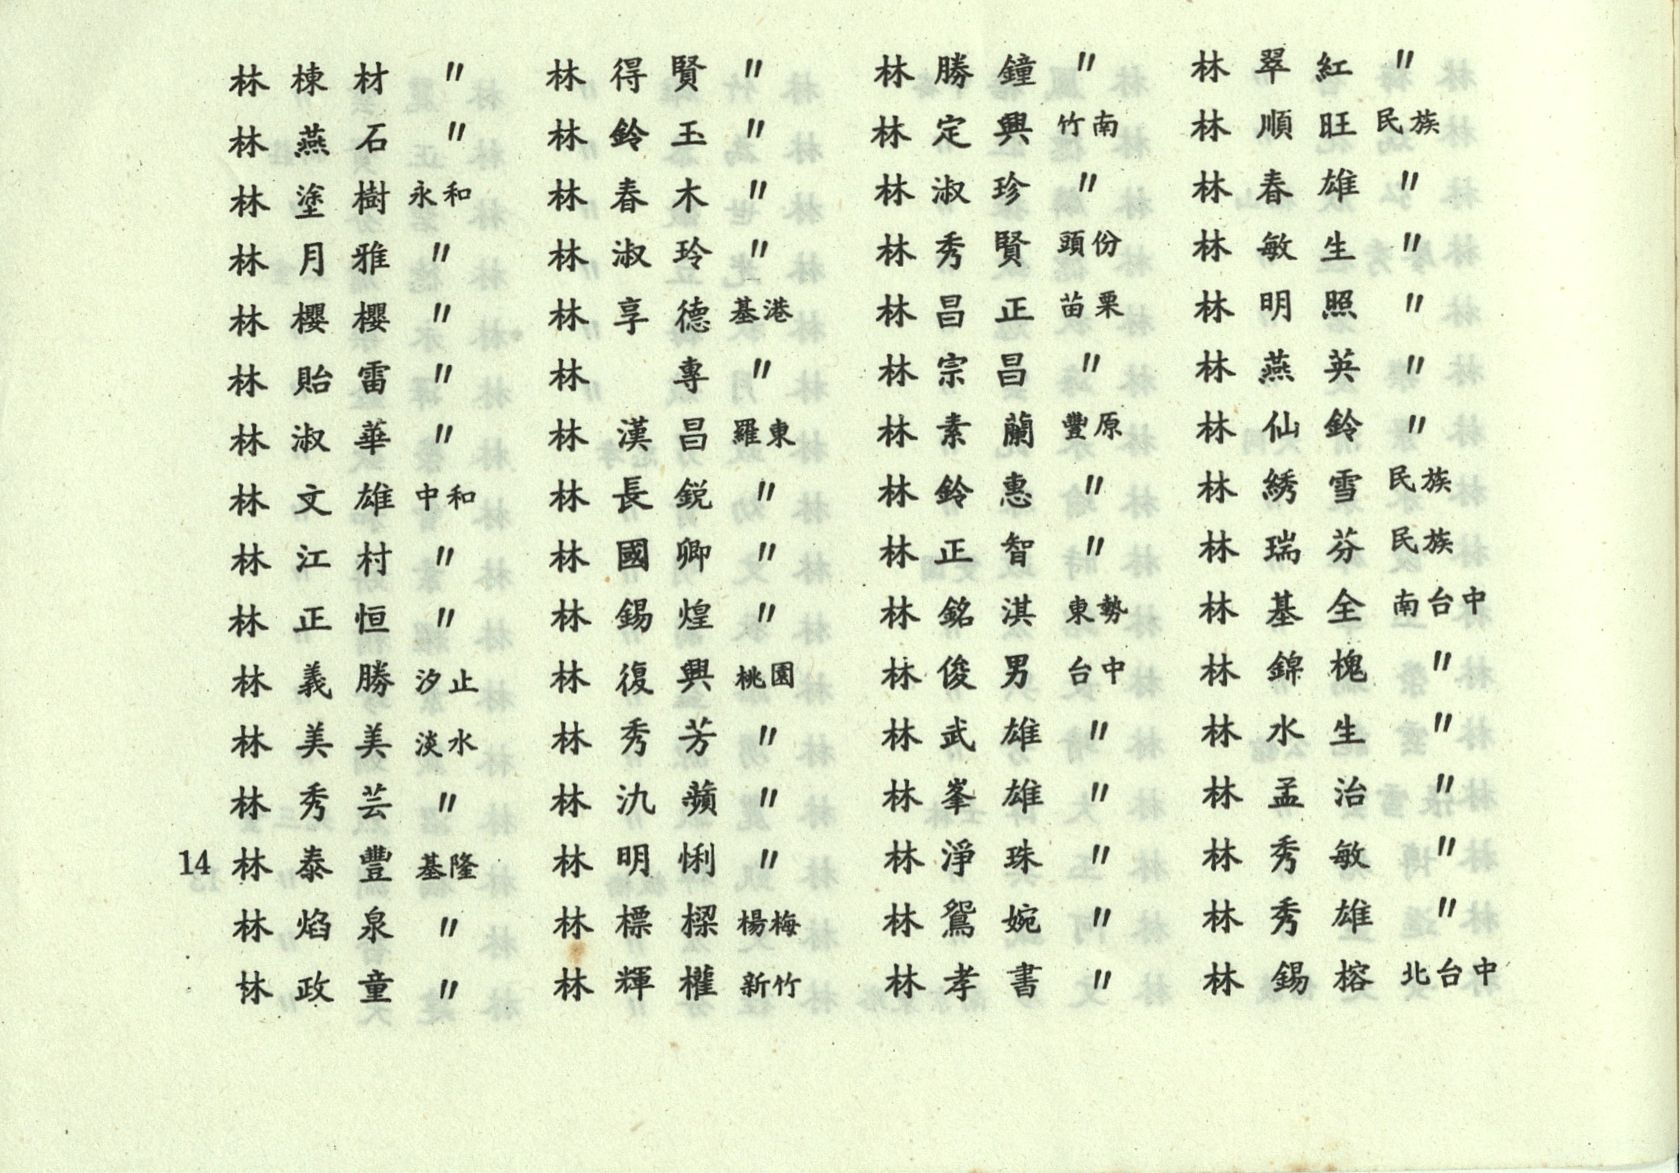 林棟材 〃
林燕石 〃
林塗樹 永和
林月雅 〃
林櫻櫻 〃
林貽雷 〃
林淑華 〃
林文雄 中和
林江村 〃
林正恒 〃
林義勝 汐止
林美美 淡水
林秀芸 〃
14 林泰豐 基隆
林焰泉 〃
林政童 〃
林得賢 〃
林鈴玉 〃
林春木 〃
林淑玲 〃
林享德 基港
林專 〃
林漢昌 羅東
林長銳 〃
林國卿 〃
林錫煌 〃
林復興 桃園
林秀芳 〃
林氿蘋 〃
林明悧 〃
林標樑 楊梅
林輝權 新竹
林勝鐘 〃
林定興 竹南
林淑珍 〃
林秀賢 頭份
林昌正 苗栗
林宗昌 〃
林素蘭 豐原
林鈴惠 〃
林正智 〃
林銘淇 東勢
林俊男 台中
林武雄 〃
林峯雄 〃
林淨珠 〃
林鴛婉 〃
林孝書 〃
林翠紅 〃
林順旺 民族
林春雄 〃
林敏生 〃
林明照 〃
林燕英 〃
林仙鈴 〃
林綉雪 民族
林瑞芬 民族
林基全 南台中
林錦槐 〃
林水生 〃
林孟治 〃
林秀敏 〃
林秀雄 〃
林錫榕 北台中